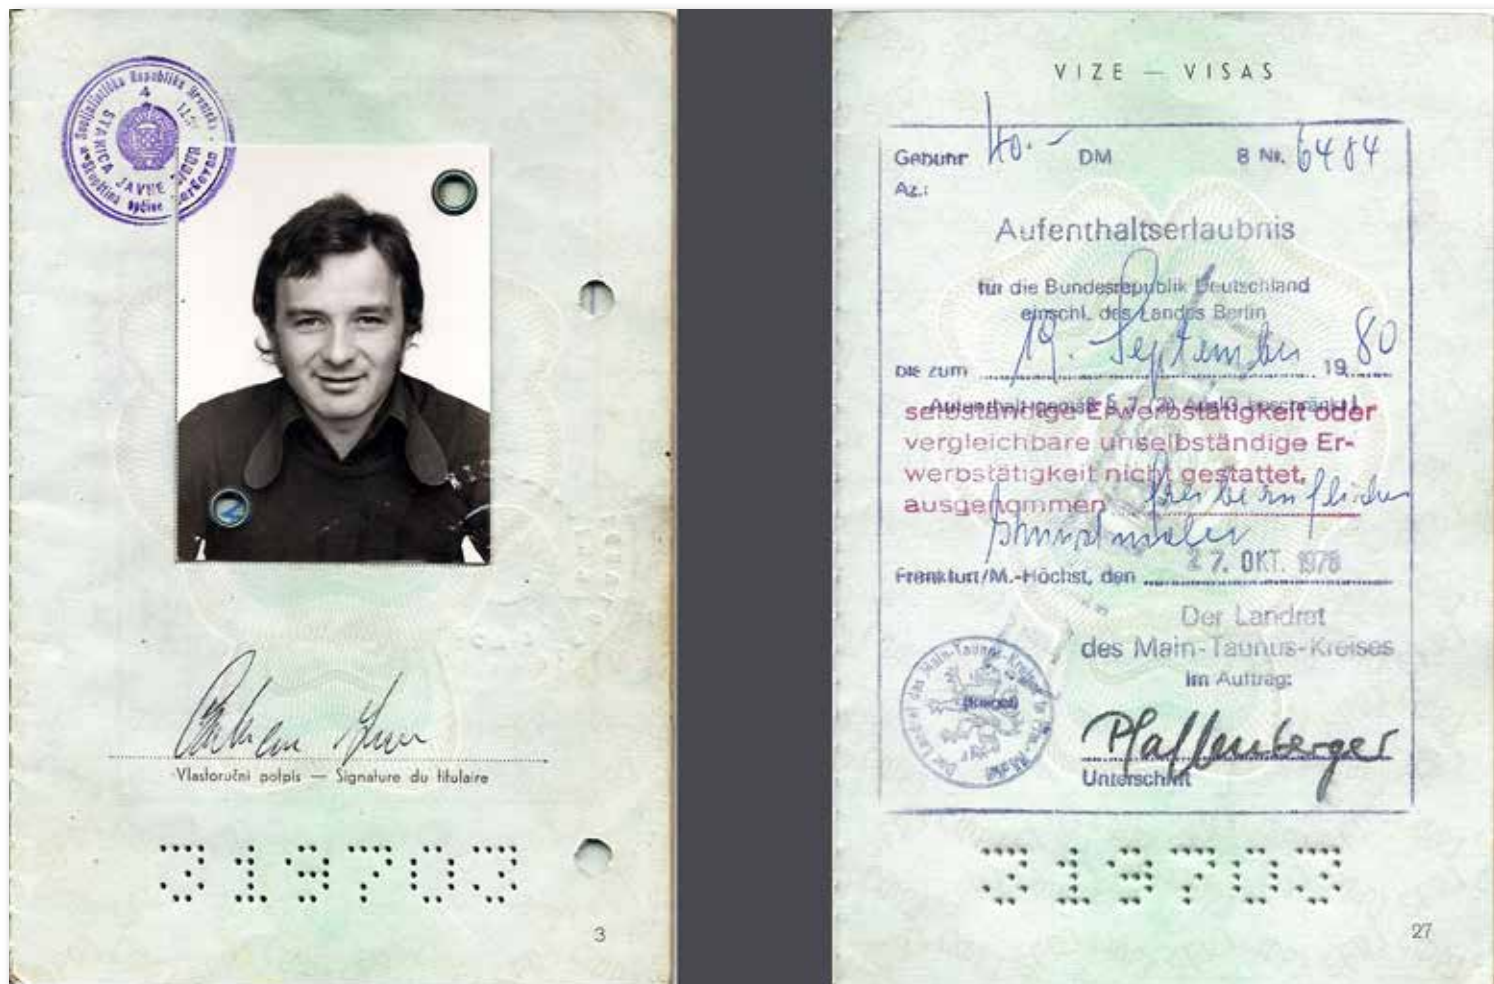 Socijalistička Republika Hrvatska
Skupština općine Đurđevac
STANICA JAVNE
4
Vlastoručni potpis — Signature du titulaire
319703
3
VIZE — VISAS
Gebühr 40.- DM B Nr. 6484
Az.:
Aufenthaltserlaubnis
für die Bundesrepublik Deutschland
einschl. des Landes Berlin
bis zum 19. September 1980
selbständige Erwerbstätigkeit oder
vergleichbare unselbständige Er-
werbstätigkeit nicht gestattet,
ausgenommen freiberuflicher
Kunstmaler
Frankfurt/M.-Höchst, den 27. OKT. 1978
Der Landrat
des Main-Taunus-Kreises
Im Auftrag:
Pfaffenberger
Unterschrift
Der Landrat des Main-Taunus-Kreises
319703
27